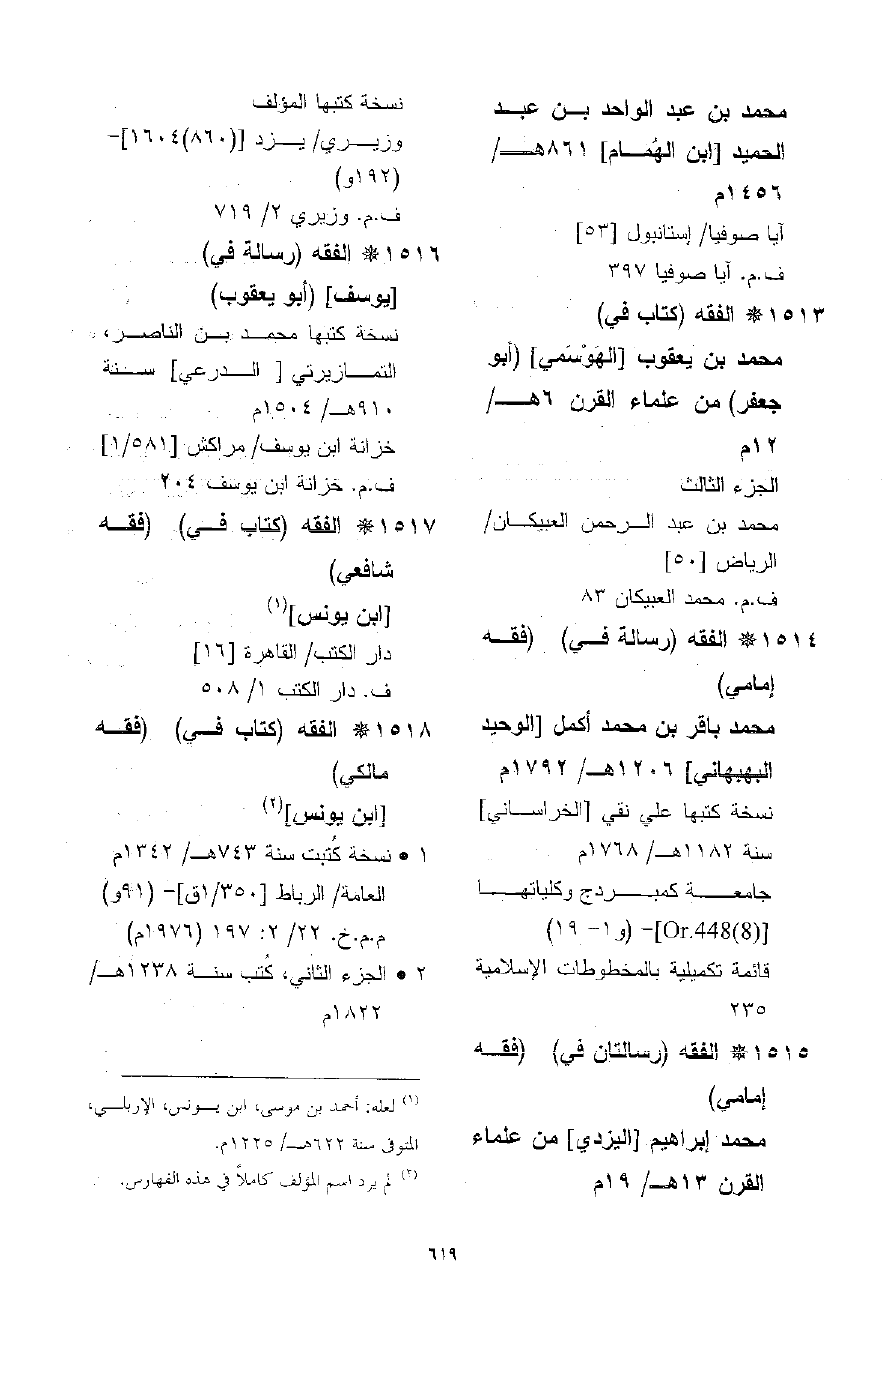 محمد بن عبد الواحد بـــن عبـــد
الحميد [ابن الهُمـــام] ٨٦١هـــ/
١٤٥٦م
آيا صوفيا/ إستانبول [٥٣]
فـ.مـ. آيا صوفيا ٣٩٧
١٥١٣* الفقه (كتاب في)
محمد بن يعقوب [الهَوْسَمي] (أبو
جعفر) من علماء القرن ٦هـــ/
١٢م
الجزء الثالث
محمد بن عبد الـــرحمن العبيكـــان/
الرياض [٥٠]
فـ.مـ. محمد العبيكان ٨٣
١٥١٤* الفقه (رسالة فـــي) (فقـــه
إمامي)
محمد باقر بن محمد أكمل [الوحيد
البهبهاني] ١٢٠٦هـــ/ ١٧٩٢م
نسخة كتبها علي نقي [الخراســـاني]
سنة ١١٨٢هـــ/ ١٧٦٨م
جامعـــة كمبـــردج وكلياتهـــا
[Or.448(8)]- (و١- ١٩)
قائمة تكميلية بالمخطوطات الإسلامية
٢٣٥
١٥١٥* الفقه (رسالتان في) (فقـــه
إمامي)
محمد إبراهيم [اليزدي] من علماء
القرن ١٣هـــ/ ١٩م
نسخة كتبها المؤلف
وزيـــري/ يـــزد [(٨٦٠)١٦٠٤]-
(١٩٢و)
فـ.مـ. وزيري ٢/ ٧١٩
١٥١٦* الفقه (رسالة في)
[يوسف] (أبو يعقوب)
نسخة كتبها محمـــد بـــن الناصـــر،
التمـــازيرتي [ الـــدرعي] ســـنة
٩١٠هـــ/ ١٥٠٤م
خزانة ابن يوسف/ مراكش [١/٥٨١]
فـ.مـ. خزانة ابن يوسف ٢٠٤
١٥١٧* الفقه (كتاب فـــي) (فقـــه
شافعي)
[ابن يونس](١)
دار الكتب/ القاهرة [١٦]
فـ. دار الكتب ١/ ٥٠٨
١٥١٨* الفقه (كتاب فـــي) (فقـــه
مالكي)
[ابن يونس](٢)
١ • نسخة كُتبت سنة ٧٤٣هـــ/ ١٣٤٢م
العامة/ الرباط [١/٣٥٠ق]- (٩١و)
م.م.خ. ٢٢/ ٢: ١٩٧ (١٩٧٦م)
٢ • الجزء الثاني، كُتب ســـنة ١٢٣٨هـــ/
١٨٢٢م
(١) لعله: أحمد بن موسى، ابن يـــونس، الإربلـــي،
المتوفى سنة ٦٢٢هـــ/ ١٢٢٥م.
(٢) لم يرد اسم المؤلف كاملاً في هذه الفهارس.
٦١٩